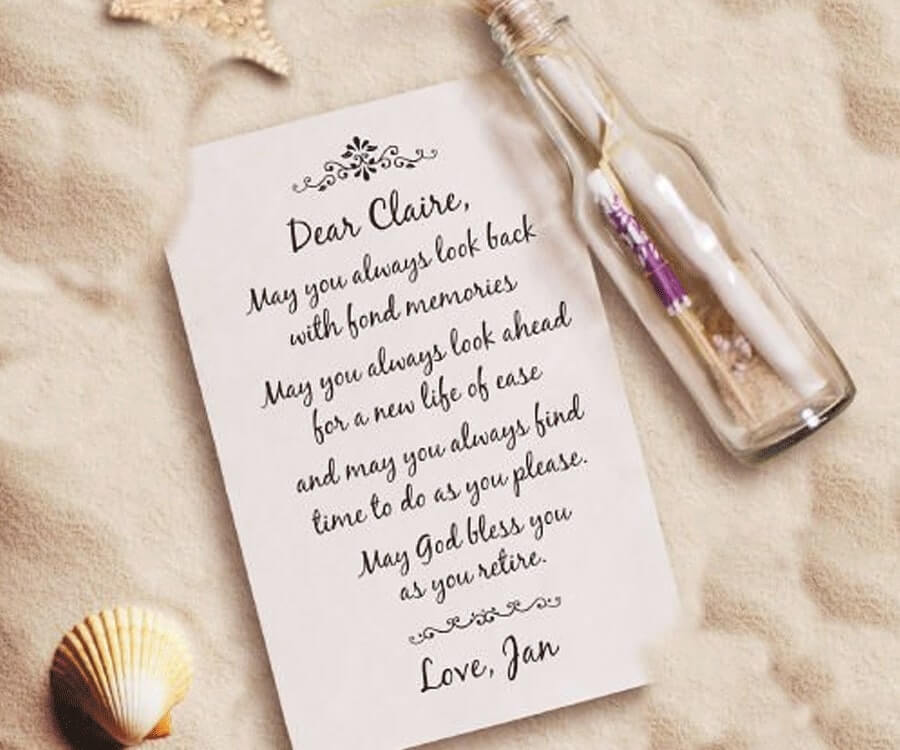 Dear Claire,
May you always look back
with fond memories
May you always look ahead
for a new life of ease
and may you always find
time to do as you please.
May God bless you
as you retire.
Love, Jan